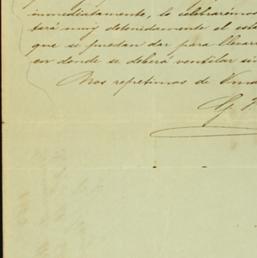 inmediatamente, lo celebrarémos
tará muy detenidamente el esta
que se puedan dar para llevar
en donde se deberá ventilar sin
Nos repetimos de Vmd